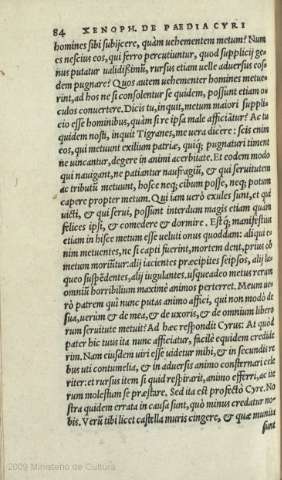 84 XENOPH. DE PAEDIA CYRI
homines sibi subijcere, quàm uehementem metum? Num
es nescius eos, qui ferro percutiuntur, quod supplicij ge-
nus putatur ualidißimũ, rursus etiam uelle aduersus eos-
dem pugnare? Quos autem uehementer homines metue-
rint, ad hos ne si consolentur se quidem, possunt etiam o-
culos conuertere. Dicis tu, inquit, metum maiori suppli-
cio esse hominibus, quàm si re ipsa male afficiãtur? Ac tu
quidem nosti, inquit Tigranes, me uera dicere: scis enim
eos, qui metuunt exilium patriæ, quiq; pugnaturi timent
ne uincantur, degere in animi acerbitate. Et eodem modo
qui nauigant, ne patiantur naufragiũ, & qui seruitutem
ac tributũ metuunt, hosce neq; cibum posse, neq; potum
capere propter metum. Qui iam uerò exules sunt, et qui
uicti, & qui serui, possunt interdum magis etiam quàm
felices ipsi, & comedere & dormire. Estq́; manifestius
etiam in hisce metum esse ueluti onus quoddam: aliqui e-
nim metuentes, ne si capti fuerint, mortem dent, prius ob
metum moriũtur: alij iacientes præcipites seipsos, alij la-
queo suspẽdentes, alij iugulantes. usqueadeo metus rerum
omniũ horribilium maximè animos perterret. Meum ue-
rò patrem qui nunc putas animo affici, qui non modò de
sua, uerùm & de mea, & de uxoris, & de omnium libero
rum seruitute metuit? Ad hæc respondit Cyrus: At quòd
pater hic tuus ita nunc afficiatur, facilè equidem credide-
rim. Nam eiusdem uiri esse uidetur mihi, & in secundis re
bus uti contumelia, & in aduersis animo consternari cele
riter: et rursus item si quid respirarit, animo efferri, ac ite
rum molestum se præstare. Sed ita est profectò Cyre. No
stra quidem errata in causa sunt, quò minus credatur no-
bis. Verũ tibi licet castella muris cingere, & quæ munita
sunt
2009 Ministerio de Cultura